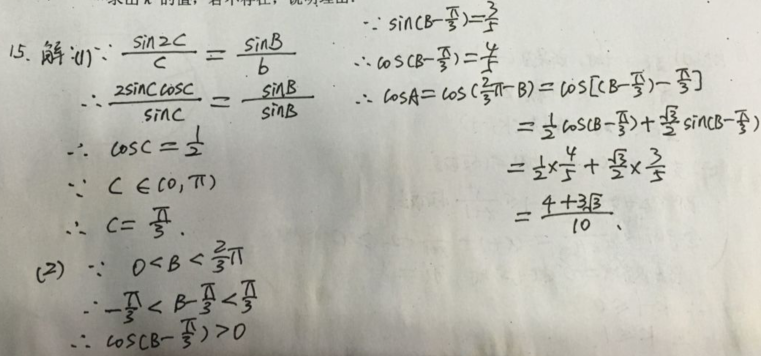 15. 解:(1)∵ sin2C/C = sinB/b
∴ 2sinCcosC/sinC = sinB/sinB
∴ cosC = 1/2
∵ C ∈ (0, π)
∴ C = π/3.
(2) ∵ 0 < B < 2/3π
∴ -π/3 < B - π/3 < π/3
∴ cos(B - π/3) > 0
∵ sin(B - π/3) = 3/5
∴ cos(B - π/3) = 4/5
∴ cosA = cos(2/3π - B) = cos[(B - π/3) - π/3]
= 1/2 cos(B - π/3) + √3/2 sin(B - π/3)
= 1/2 × 4/5 + √3/2 × 3/5
= (4 + 3√3)/10.